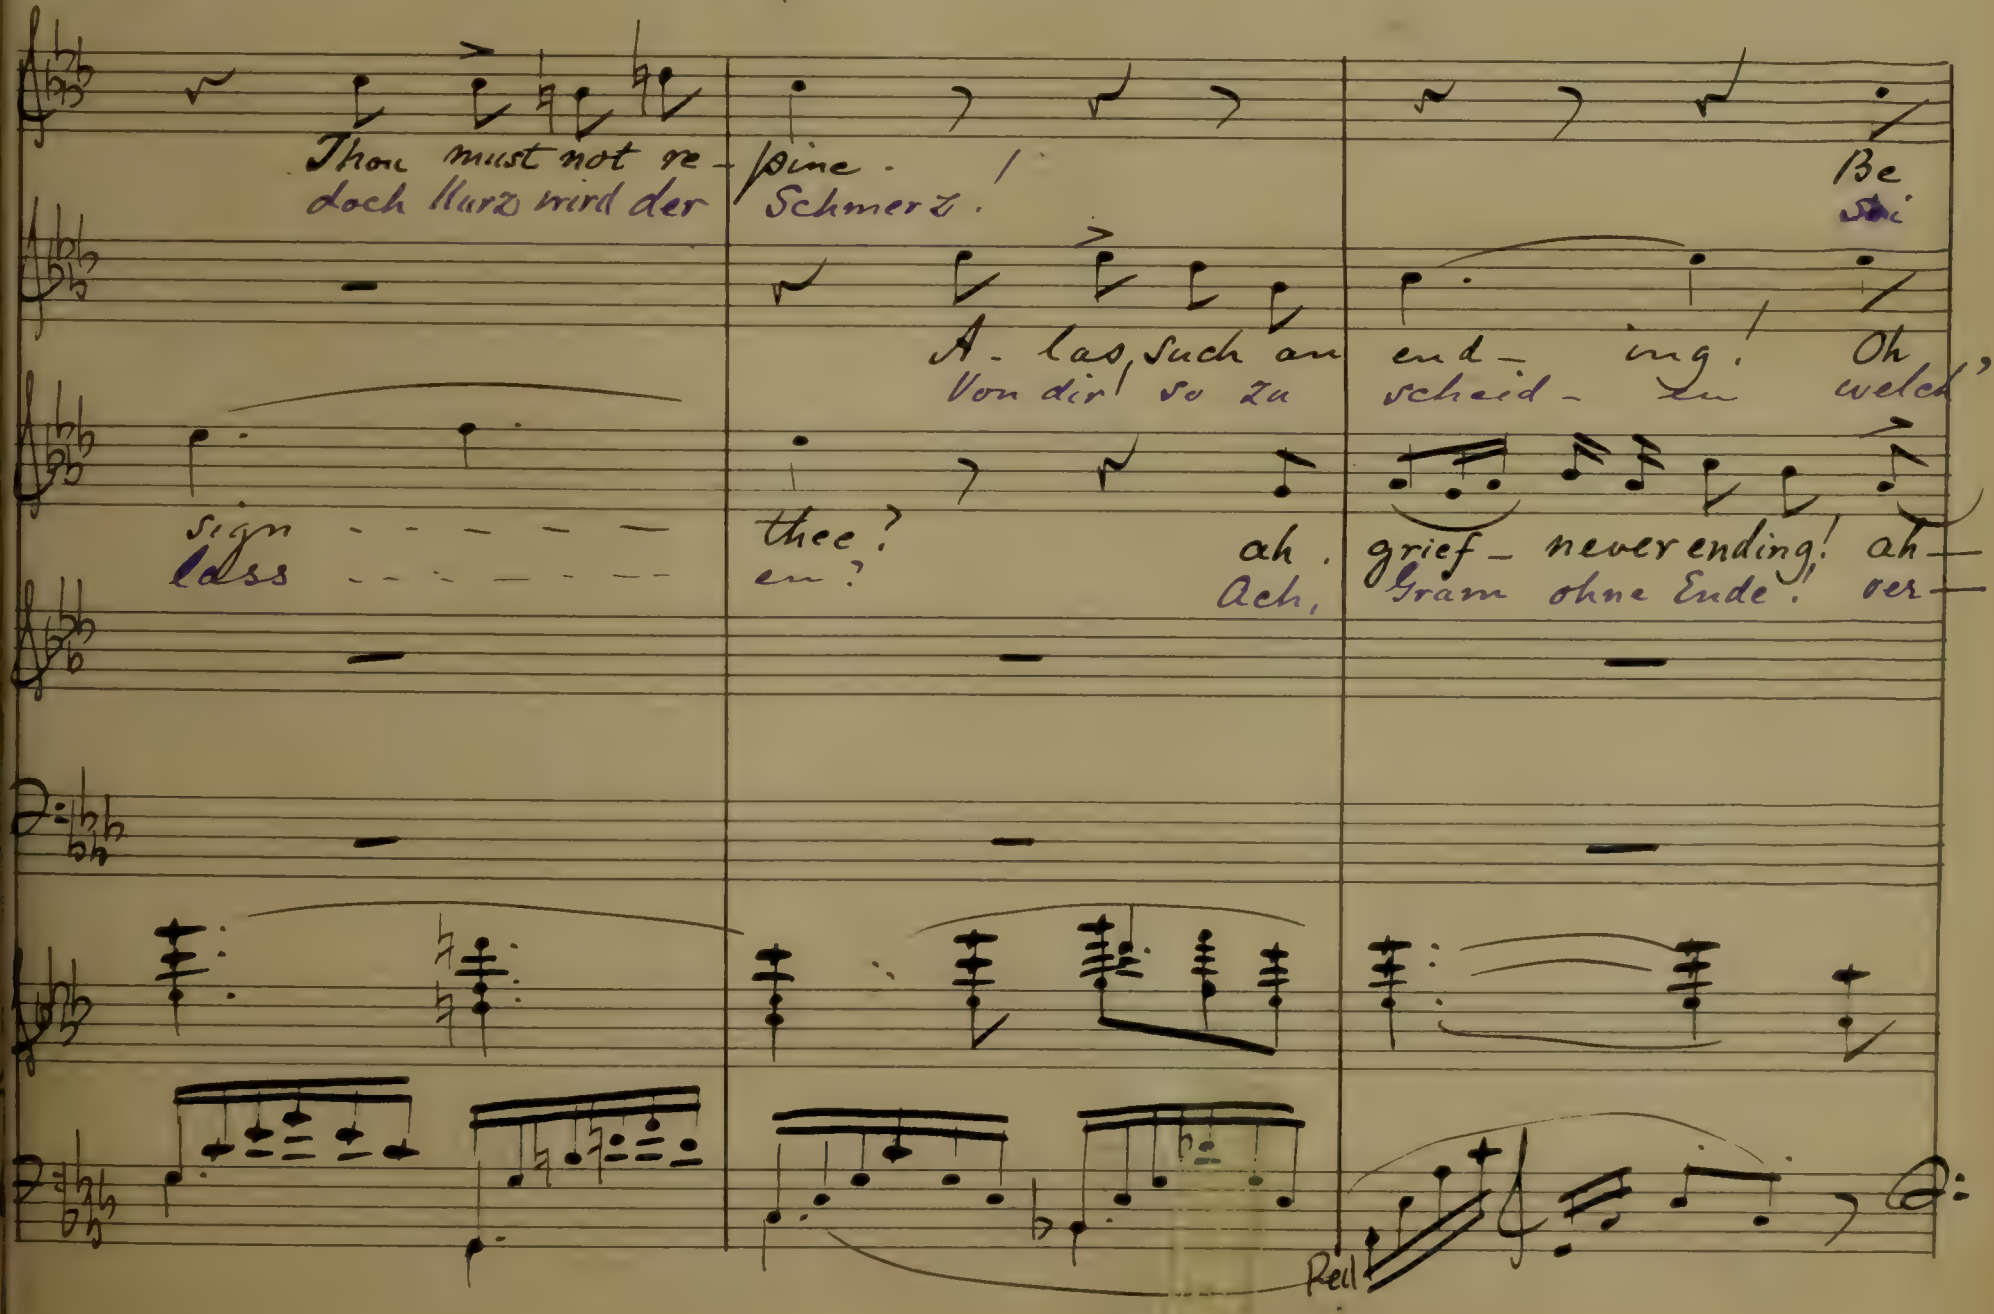 Thou must not re- pine. ! Be
doch kurz wird der Schmerz! sei
A- las, such an end- ing! Oh
Von dir! so zu scheid- en welch'
sign - - - - - thee? ah. grief- never ending! ah-
lass - - - - - en? Ach, Gram ohne Ende! ver-
Ped